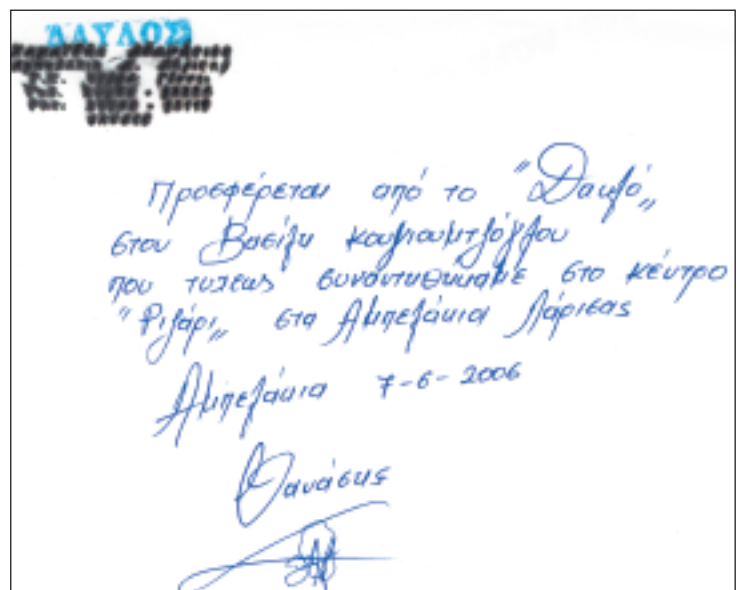 ΔΑΥΛΟΣ
Προσφέρεται από το "Δαυλό„
στον Βασίλη Κουγιουμτζόγλου
που τυχεως συναντηθήκαμε στο κέντρο
"Ριζάρι„ στα Αμπελάκια Λάρισας
Αμπελάκια 7-6-2006
Θανάσης